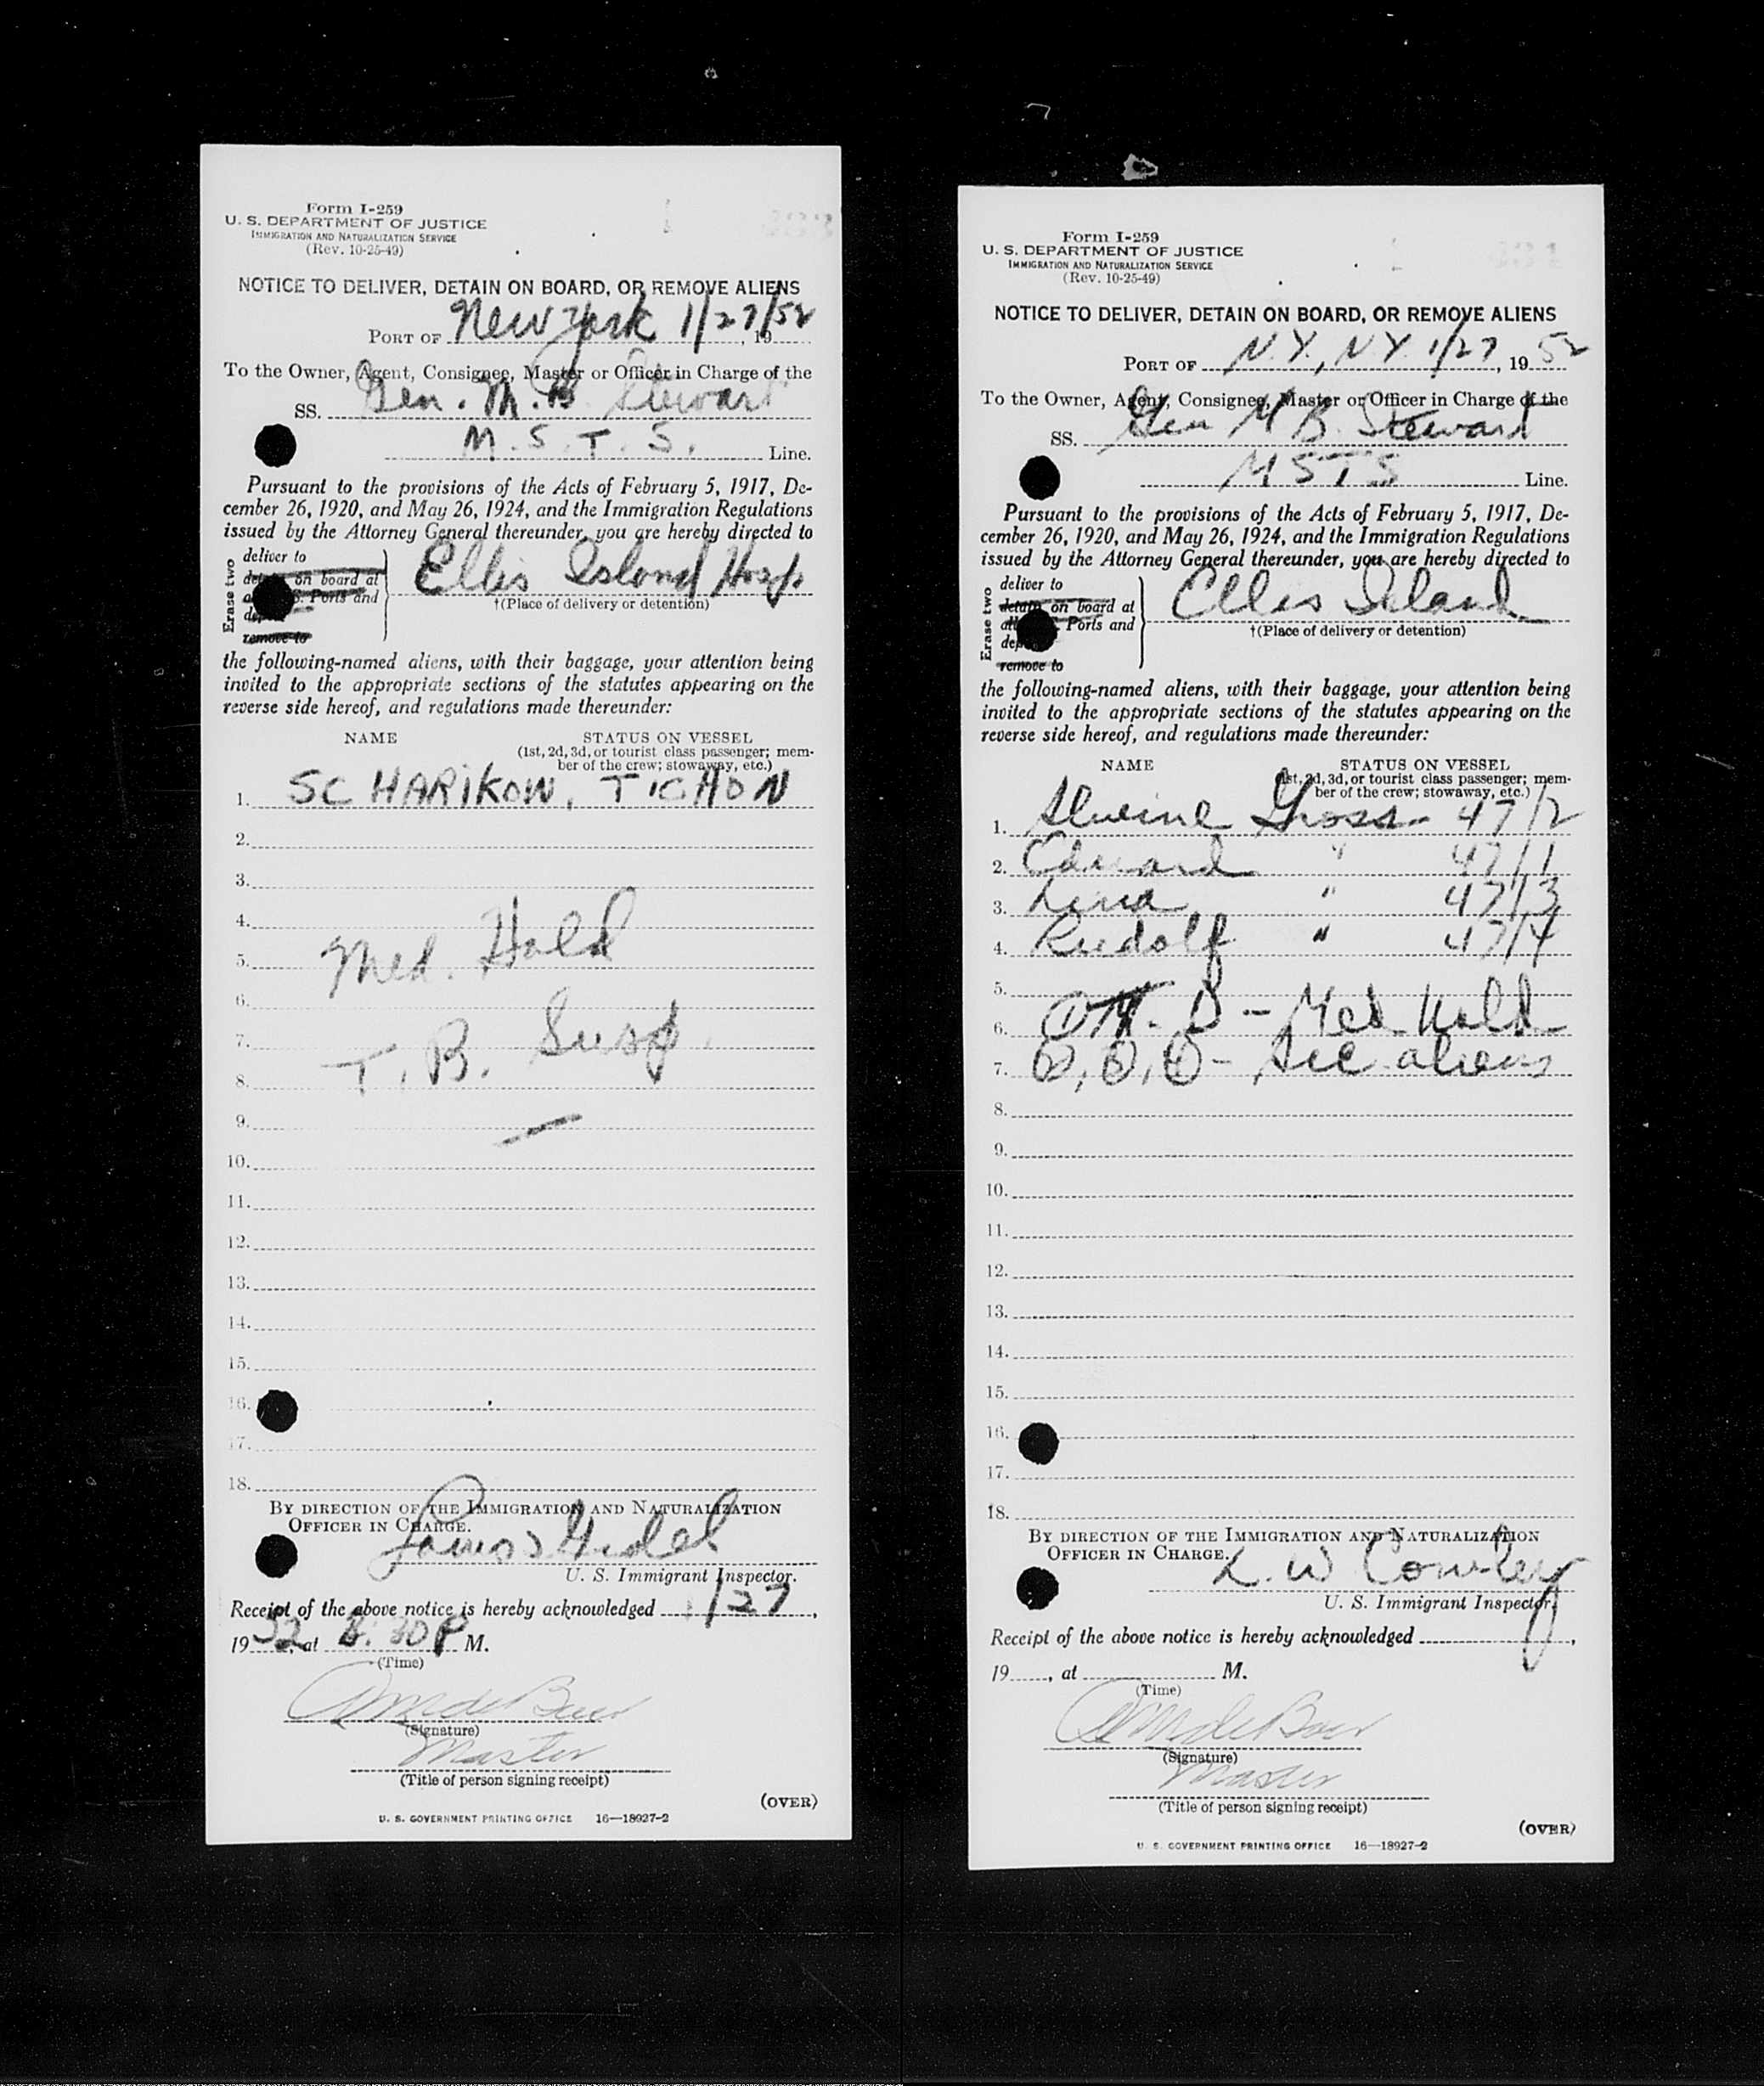 Form I-259
U. S. DEPARTMENT OF JUSTICE
IMMIGRATION AND NATURALIZATION SERVICE
(Rev. 10-25-49)
NOTICE TO DELIVER, DETAIN ON BOARD, OR REMOVE ALIENS
PORT OF New York 1/27/52, 19
To the Owner, Agent, Consignee, Master or Officer in Charge of the
SS. Gen. M. B. Stewart
M. S. T. S. Line.
Pursuant to the provisions of the Acts of February 5, 1917, De-
cember 26, 1920, and May 26, 1924, and the Immigration Regulations
issued by the Attorney General thereunder, you are hereby directed to
Erase two
deliver to
on board at
Ports and
remove to
Ellis Island Hosp.
†(Place of delivery or detention)
the following-named aliens, with their baggage, your attention being
invited to the appropriate sections of the statutes appearing on the
reverse side hereof, and regulations made thereunder:
NAME STATUS ON VESSEL
(1st, 2d, 3d, or tourist class passenger; mem-
ber of the crew; stowaway, etc.)
1. SCHARIKOW, TICHON
2.
3.
4.
5. Med. Hold
6.
7.
8. T. B. Susp.
9.
10.
11.
12.
13.
14.
15.
16.
17.
18.
BY DIRECTION OF THE IMMIGRATION AND NATURALIZATION
OFFICER IN CHARGE.
U. S. Immigrant Inspector.
Receipt of the above notice is hereby acknowledged 1/27,
1952, at 30 P M.
(Time)
(Signature)
Master
(Title of person signing receipt)
(OVER)
U. S. GOVERNMENT PRINTING OFFICE 16—18927-2
Form I-259
U. S. DEPARTMENT OF JUSTICE
IMMIGRATION AND NATURALIZATION SERVICE
(Rev. 10-25-49)
NOTICE TO DELIVER, DETAIN ON BOARD, OR REMOVE ALIENS
PORT OF N.Y., N.Y. 1/27, 1952
To the Owner, Agent, Consignee, Master or Officer in Charge of the
SS. Gen M B. Stewart
MSTS Line.
Pursuant to the provisions of the Acts of February 5, 1917, De-
cember 26, 1920, and May 26, 1924, and the Immigration Regulations
issued by the Attorney General thereunder, you are hereby directed to
Erase two
deliver to
detain on board at
Ports and
remove to
Ellis Island
†(Place of delivery or detention)
the following-named aliens, with their baggage, your attention being
invited to the appropriate sections of the statutes appearing on the
reverse side hereof, and regulations made thereunder:
NAME STATUS ON VESSEL
(1st, 2d, 3d, or tourist class passenger; mem-
ber of the crew; stowaway, etc.)
1. Alwine Gross 47/2
2. Edward " 47/1
3. Lina " 47/3
4. Rudolf " 47/4
5.
6. Med Hold
7. aliens
8.
9.
10.
11.
12.
13.
14.
15.
16.
17.
18.
BY DIRECTION OF THE IMMIGRATION AND NATURALIZATION
OFFICER IN CHARGE.
L. W Cowley
U. S. Immigrant Inspector.
Receipt of the above notice is hereby acknowledged ,
19 , at M.
(Time)
(Signature)
Master
(Title of person signing receipt)
(OVER)
U. S. GOVERNMENT PRINTING OFFICE 16—18927-2